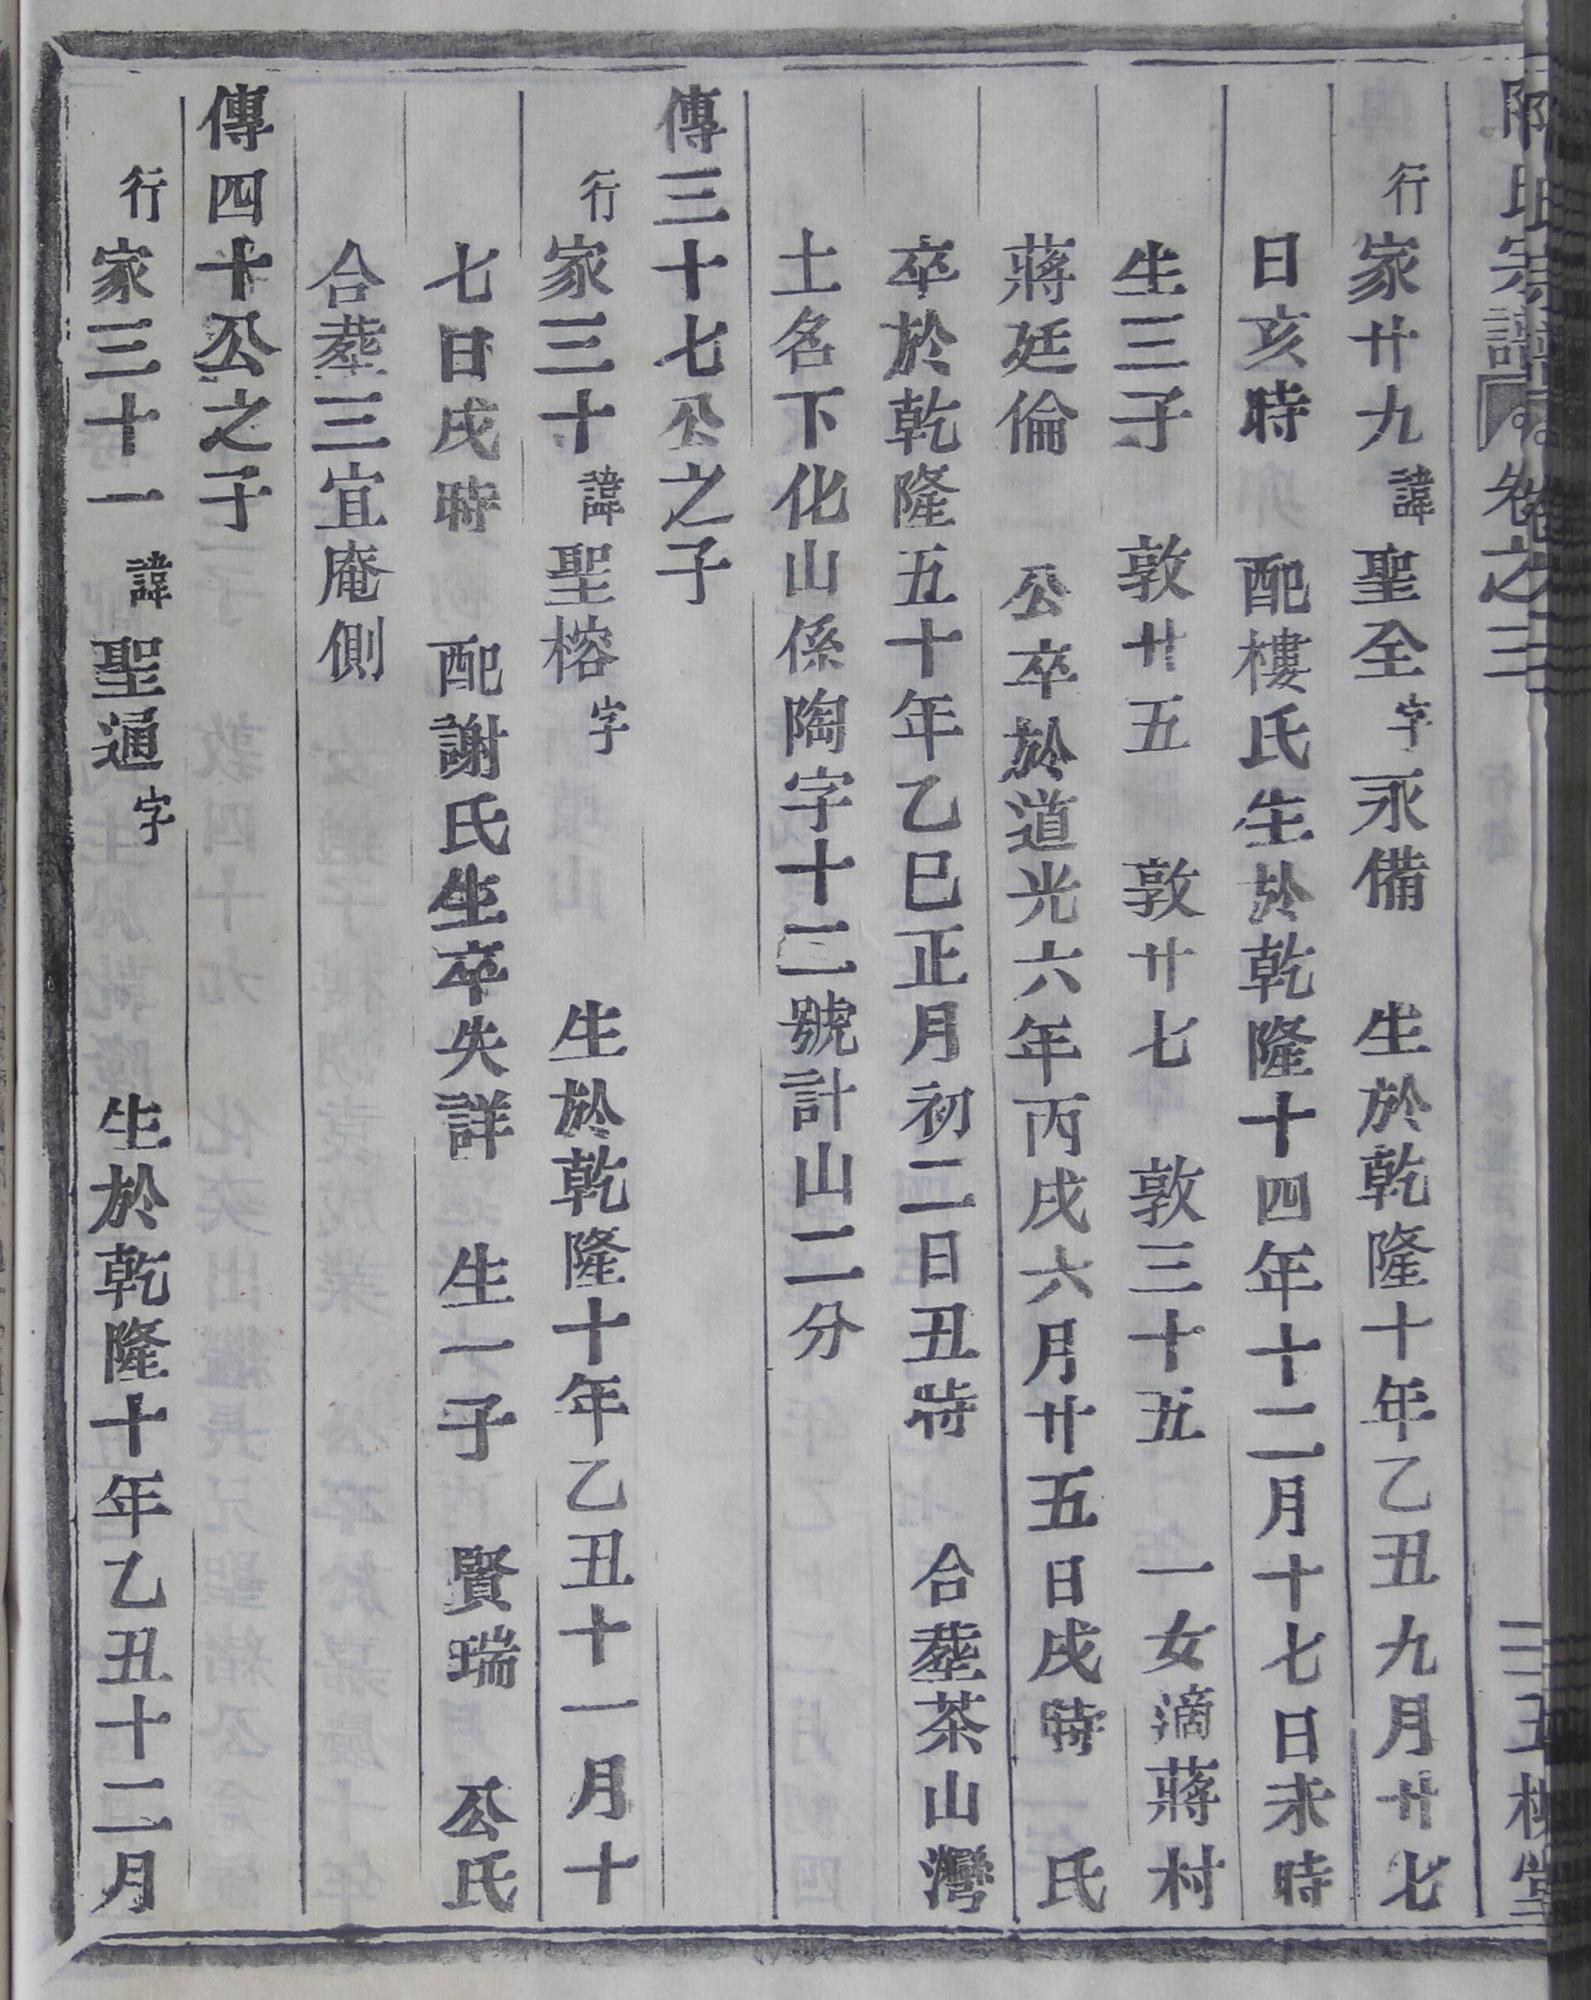 氏宗譜 卷之三 三五 堂
行家廿九諱聖全字永備 生於乾隆十年乙丑九月廿七
日亥時 配樓氏生於乾隆十四年十二月十七日未時
生三子 敦廿五 敦廿七 敦三十五 一女適蔣村
蔣廷倫 公卒於道光六年丙戌六月廿五日戌時 氏
卒於乾隆五十年乙巳正月初二日丑時 合塟茶山灣
土名下化山係陶字十二號計山二分
傳三十七公之子
行家三十諱聖榕字 生於乾隆十年乙丑十一月十
七日戌時 配謝氏生卒失詳 生一子 賢瑞 公氏
合塟三宜庵側
傳四十公之子
行家三十一諱聖通字 生於乾隆十年乙丑十二月